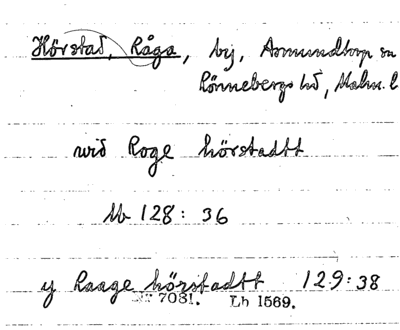 Hörstad, Råga, by, Asmundtorp sn
Rönnebergs hd, Malm. l
wid Roge hörstadtt
Mb 128: 36
y Raage hörstadtt 129:38
7081. Lh 1569.